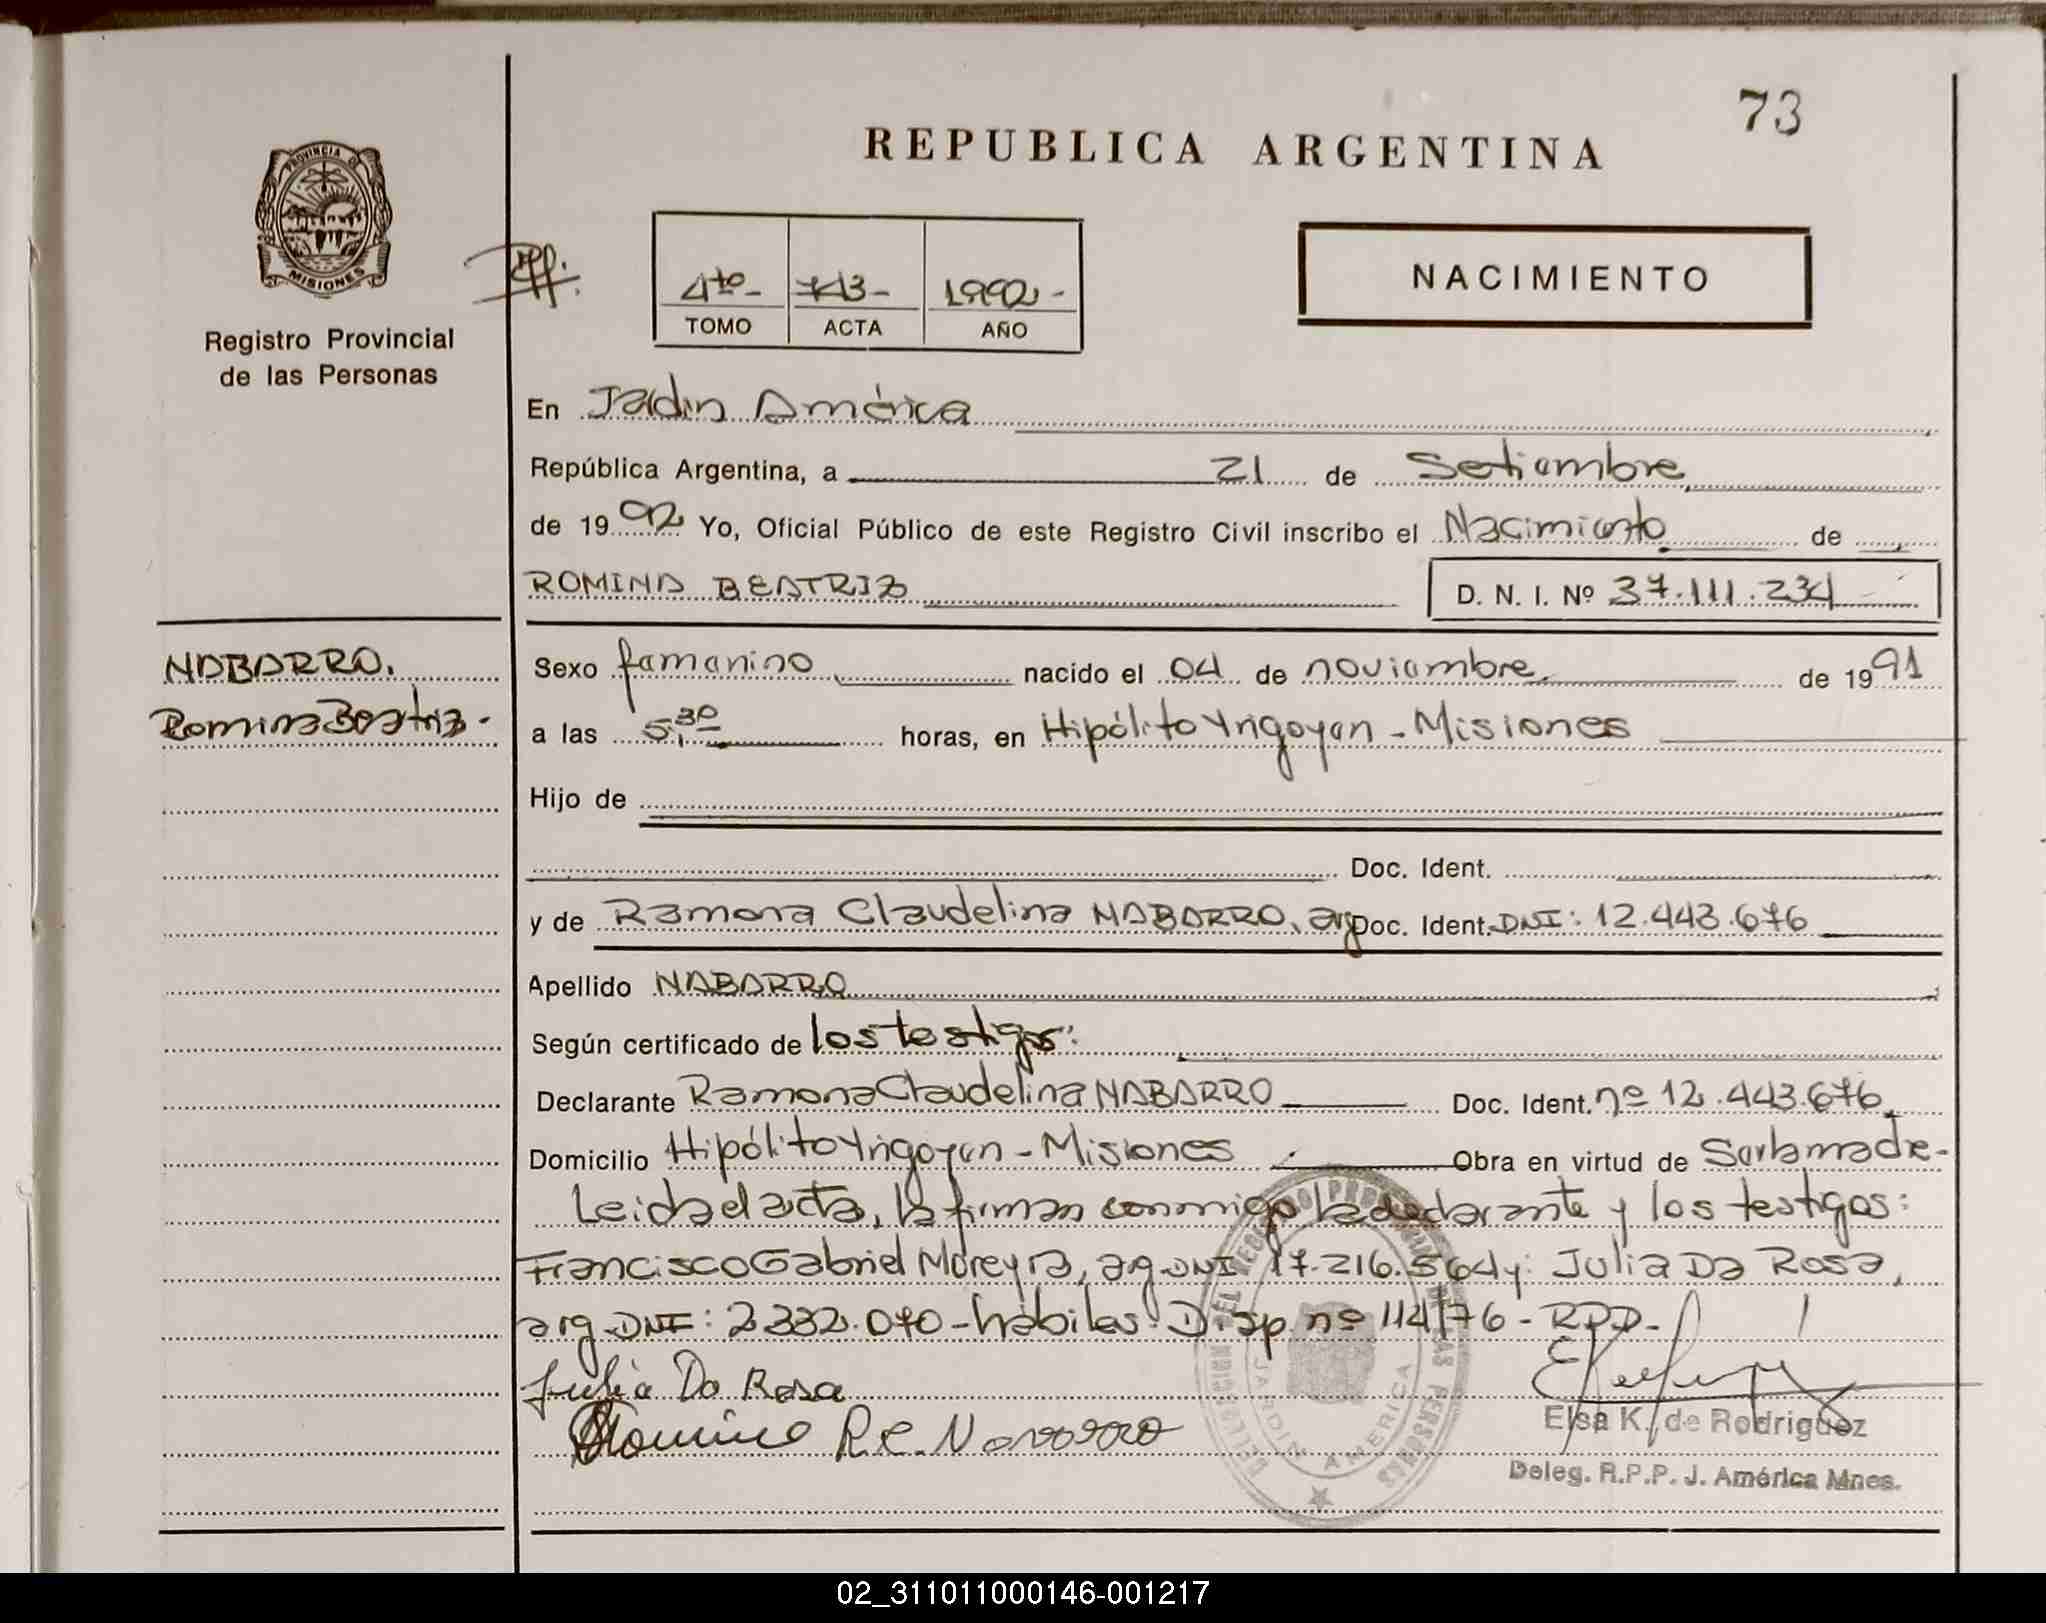 73
REPUBLICA ARGENTINA
PROVINCIA DE
MISIONES
Registro Provincial
de las Personas
4to - 743 - 1992 -
TOMO ACTA AÑO
NACIMIENTO
En Jardin América
República Argentina, a 21 de Setiembre
de 1992 Yo, Oficial Público de este Registro Civil inscribo el Nacimiento de
ROMINA BEATRIZ D. N. I. Nº 37.111.234
NABARRO.
Romina Beatriz.
Sexo femenino nacido el 04 de noviembre de 1991
a las 5,30 horas, en Hipólito Yrigoyen - Misiones
Hijo de
Doc. Ident.
y de Ramona Claudelina NABARRO, arg Doc. Ident. DNI: 12.443.676
Apellido NABARRO
Según certificado de los testigos:
Declarante Ramona Claudelina NABARRO Doc. Ident. nº 12.443.676
Domicilio Hipólito Yrigoyen - Misiones Obra en virtud de Ser la madre-
Leida el acta, la firman conmigo la declarante y los testigos:
Francisco Gabriel Moreyra, arg. DNI 17.216.564 y: Julia Da Rosa,
arg. DNI: 2.332.070 - hábiles. Disp. nº 114/76 - RPP-
Julia Da Rosa
R.C. Navarro
JARDIN AMERICA
Elsa K. de Rodriguez
Deleg. R.P.P. J. América Mnes.
02_311011000146-001217